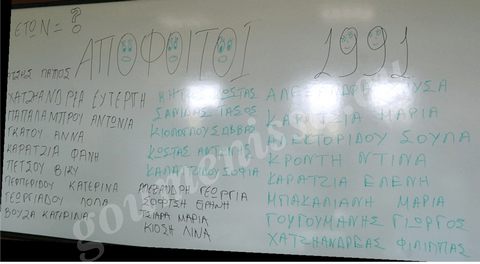 ΕΤΩΝ = ?
ΑΠΟΦΟΙΤΟΙ 1991
ΠΑΠΟΣ
ΧΑΤΖΗΑΝΔΡΕΑ ΕΥΤΕΡΠΗ
ΠΑΠΑΛΑΜΠΡΟΥ ΑΝΤΩΝΙΑ
ΓΚΑΤΟΥ ΑΝΝΑ
ΚΑΡΑΤΖΙΑ ΦΑΝΗ
ΠΕΤΣΟΥ ΒΙΚΥ
ΠΕΠΕΡΙΔΟΥ ΚΑΤΕΡΙΝΑ
ΓΕΩΡΓΙΑΔΟΥ ΛΟΛΑ
ΒΟΥΖΑ ΚΑΤΕΡΙΝΑ
ΚΩΣΤΑΣ
ΣΑΜΙΔΗΣ ΤΑΣΟΣ
ΚΙΟΠΟΓΛΟΥ ΣΑΒΒΑΣ
ΚΩΣΤΑΣ ΑΝΤΩΝΗΣ
ΚΑΛΑΙΤΖΙΔΟΥ ΣΟΦΙΑ
ΓΕΩΡΓΙΑ
ΣΟΦΤΣΗ ΕΙΡΗΝΗ
ΤΣΙΑΡΑ ΜΑΡΙΑ
ΚΙΟΣΗ ΛΙΝΑ
ΣΟΥΣΑ
ΚΑΡΑΤΖΙΑ ΜΑΡΙΑ
ΝΕΣΤΟΡΙΔΟΥ ΣΟΥΛΑ
ΚΡΟΝΤΗ ΝΤΙΝΑ
ΚΑΡΑΤΖΙΑ ΕΛΕΝΗ
ΜΠΑΚΑΛΙΑΝΗ ΜΑΡΙΑ
ΓΟΥΓΟΥΜΑΝΗΣ ΓΙΩΡΓΟΣ
ΧΑΤΖΗΑΝΔΡΕΑΣ ΦΙΛΙΠΠΑΣ
goumenissa.eu